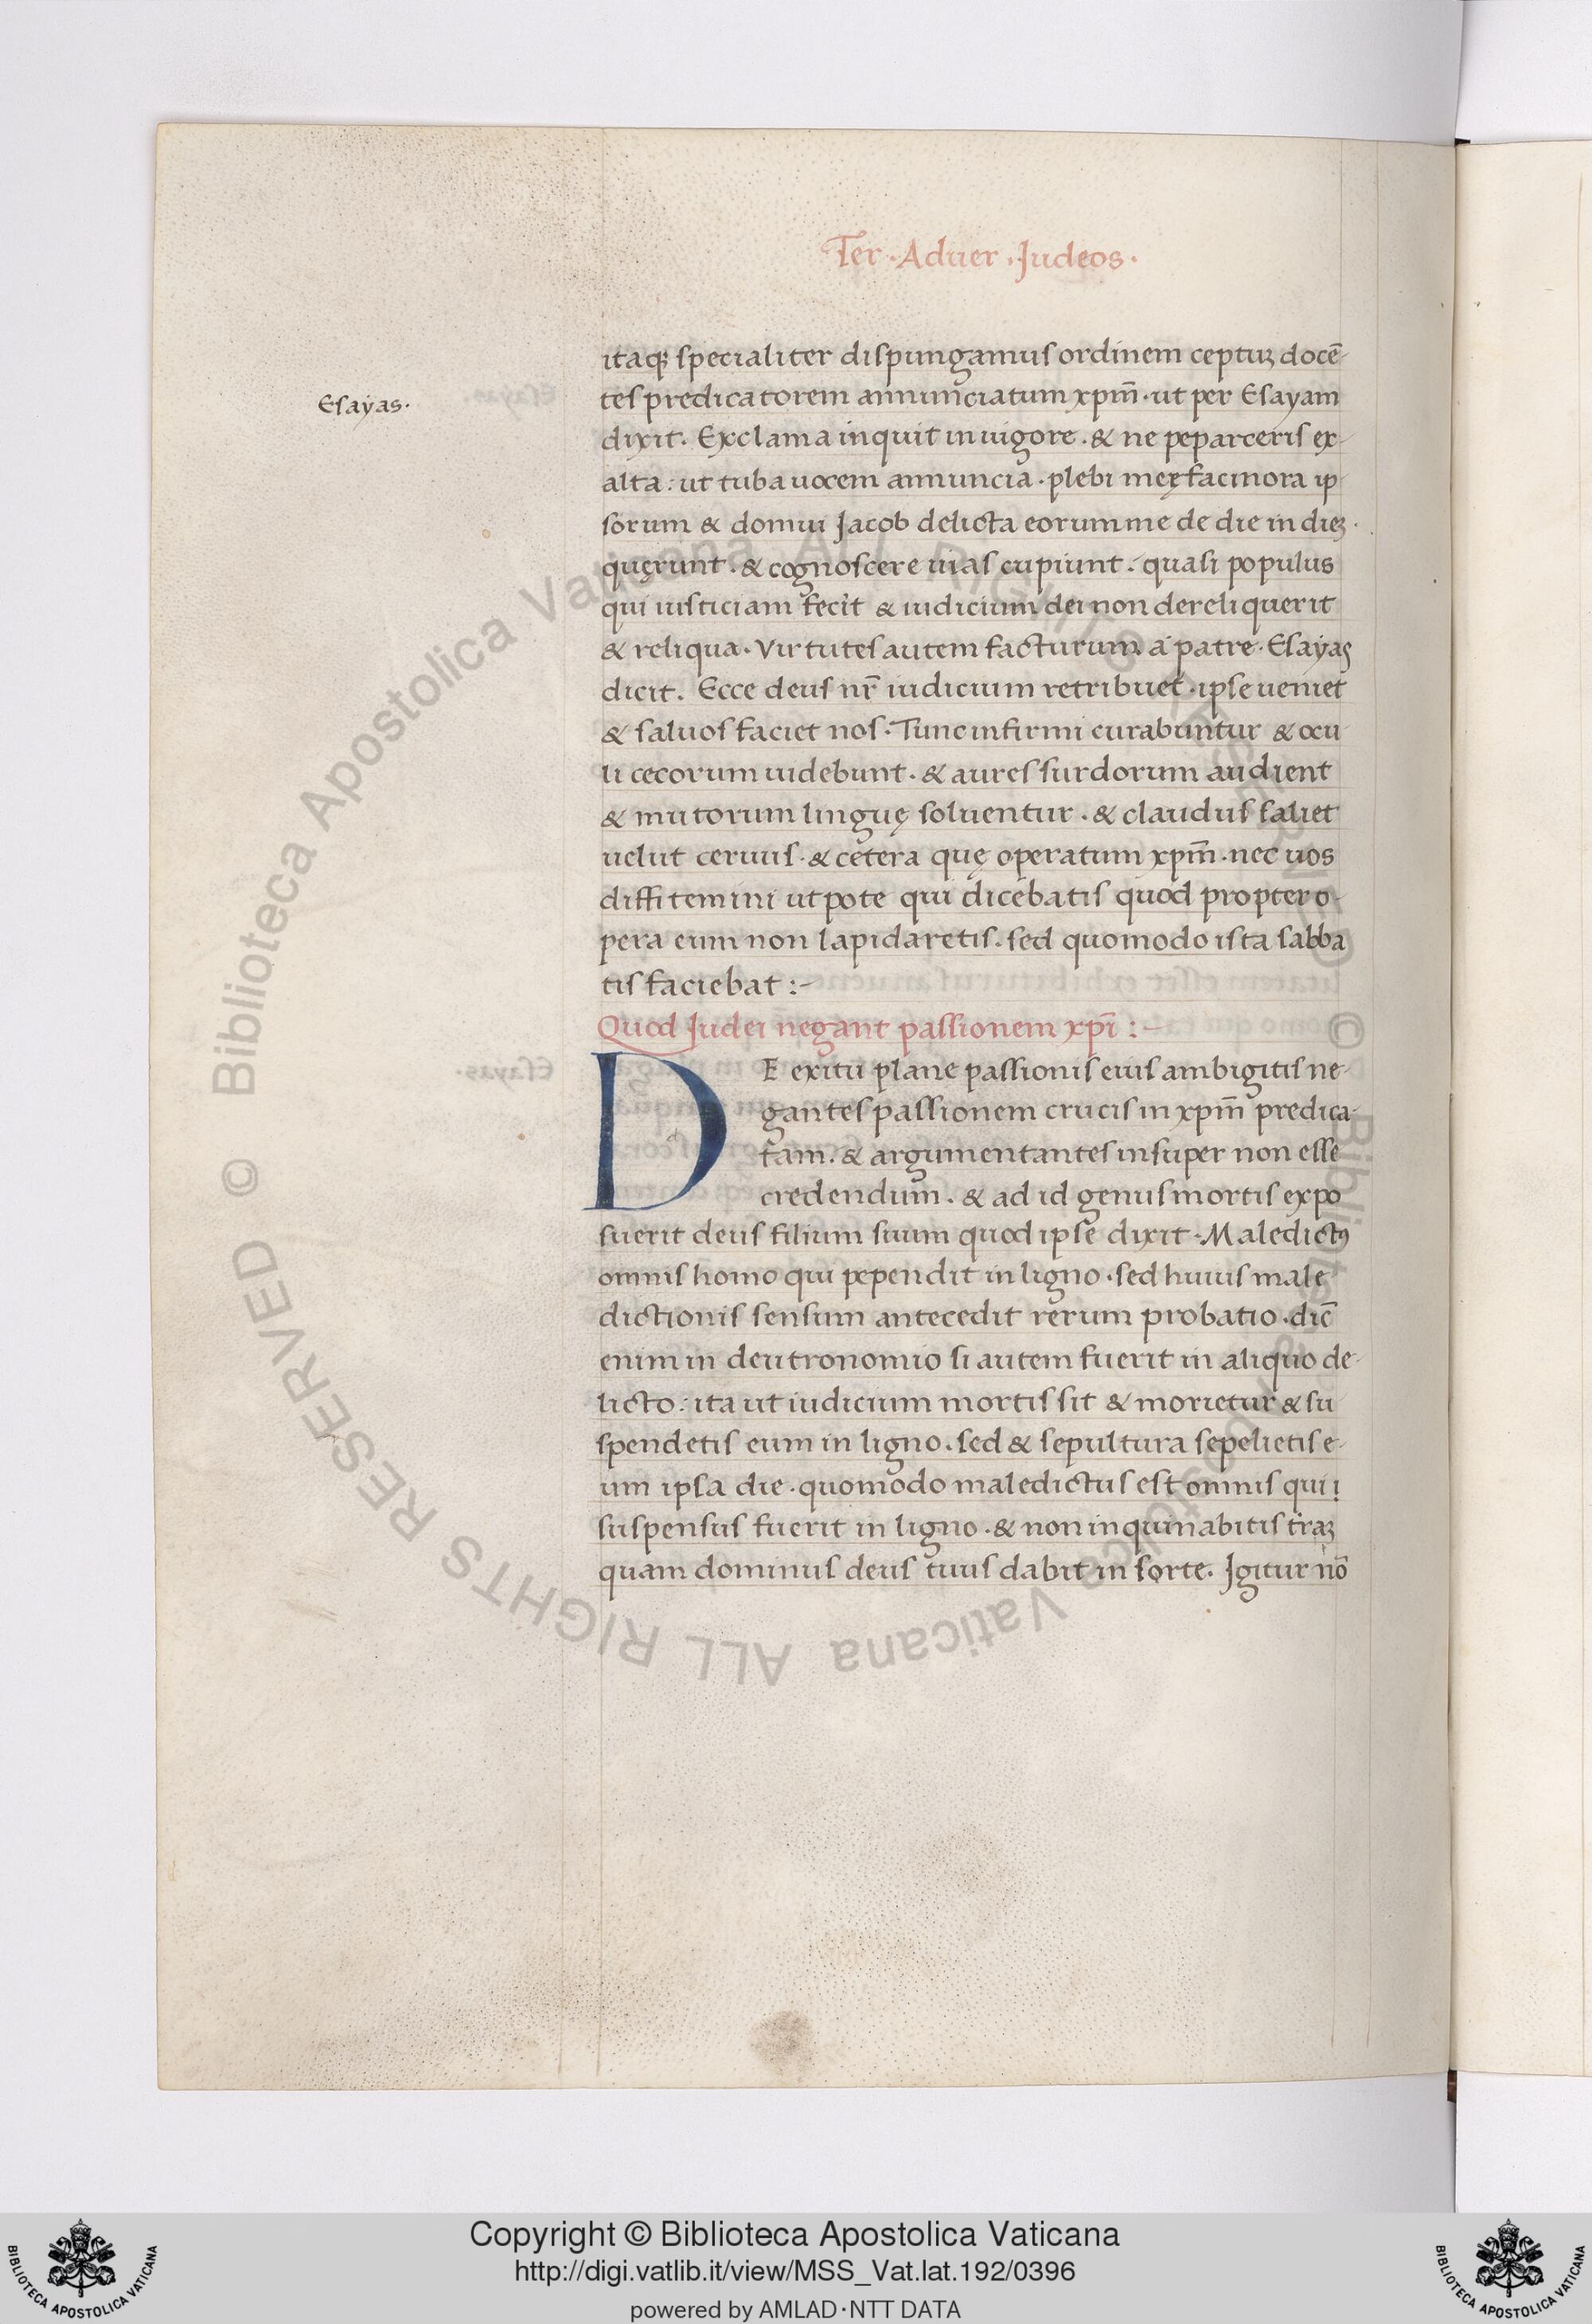 Ter · Aduer · Judeos ·
itaq; specialiter dispungamus ordinem ceptuꝫ docē-
tes predicatorem annunciatum xpm̄ · ut per Esayam
Esayas ·
dixit · Exclama inquit in uigore · & ne peparceris ex-
alta : ut tuba uocem annuncia · plebi meę facinora ip-
sorum & domui Jacob delicta eorum me de die in dieꝫ ·
quęrunt · & cognoscere uias cupiunt · quasi populus
qui iusticiam fecit & iudicium dei non dereliquerit
& reliqua · Virtutes autem facturum á patre · Esayas
dicit . Ecce deus nr̄ iudicium retribuet · ipse ueniet
& saluos faciet nos · Tunc infirmi curabuntur & ocu-
li cecorum uidebunt · & aures surdorum audient
& mutorum linguę soluentur · & claudus saliet
uelut ceruus · & cetera quę operatum xpm̄ · nec uos
diffitemini utpote qui dicebatis quod propter o-
pera eum non lapidaretis · sed quomodo ista sabba
tis faciebat :-
Quod Judei negant passionem xpi̅ :-
DE exitu plane passionis eius ambigitis ne-
gantes passionem crucis in xpm̄ predica-
tam · & argumentantes insuper non esse
credendum · & ad id genus mortis expo
suerit deus filium suum quod ipse dixit · Maledictꝰ
omnis homo qui pependit in ligno · sed huius male
dictionis sensum antecedit rerum probatio · dic̄
enim in deutronomio si autem fuerit in aliquo de-
licto : ita ut iudicium mortis sit & morietur & su-
spendetis eum in ligno · sed & sepultura sepelietis e-
um ipsa die · quomodo maledictus est omnis qui
suspensus fuerit in ligno · & non inquinabitis tr̄aꝫ
quam dominus deus tuus dabit in sorte · Igitur nō
© Biblioteca Apostolica Vaticana ALL RIGHTS RESERVED
© Biblioteca Apostolica Vaticana ALL RIGHTS RESERVED
Copyright © Biblioteca Apostolica Vaticana
http://digi.vatlib.it/view/MSS_Vat.lat.192/0396
powered by AMLAD·NTT DATA
BIBLIOTECA APOSTOLICA VATICANA
BIBLIOTECA APOSTOLICA VATICANA